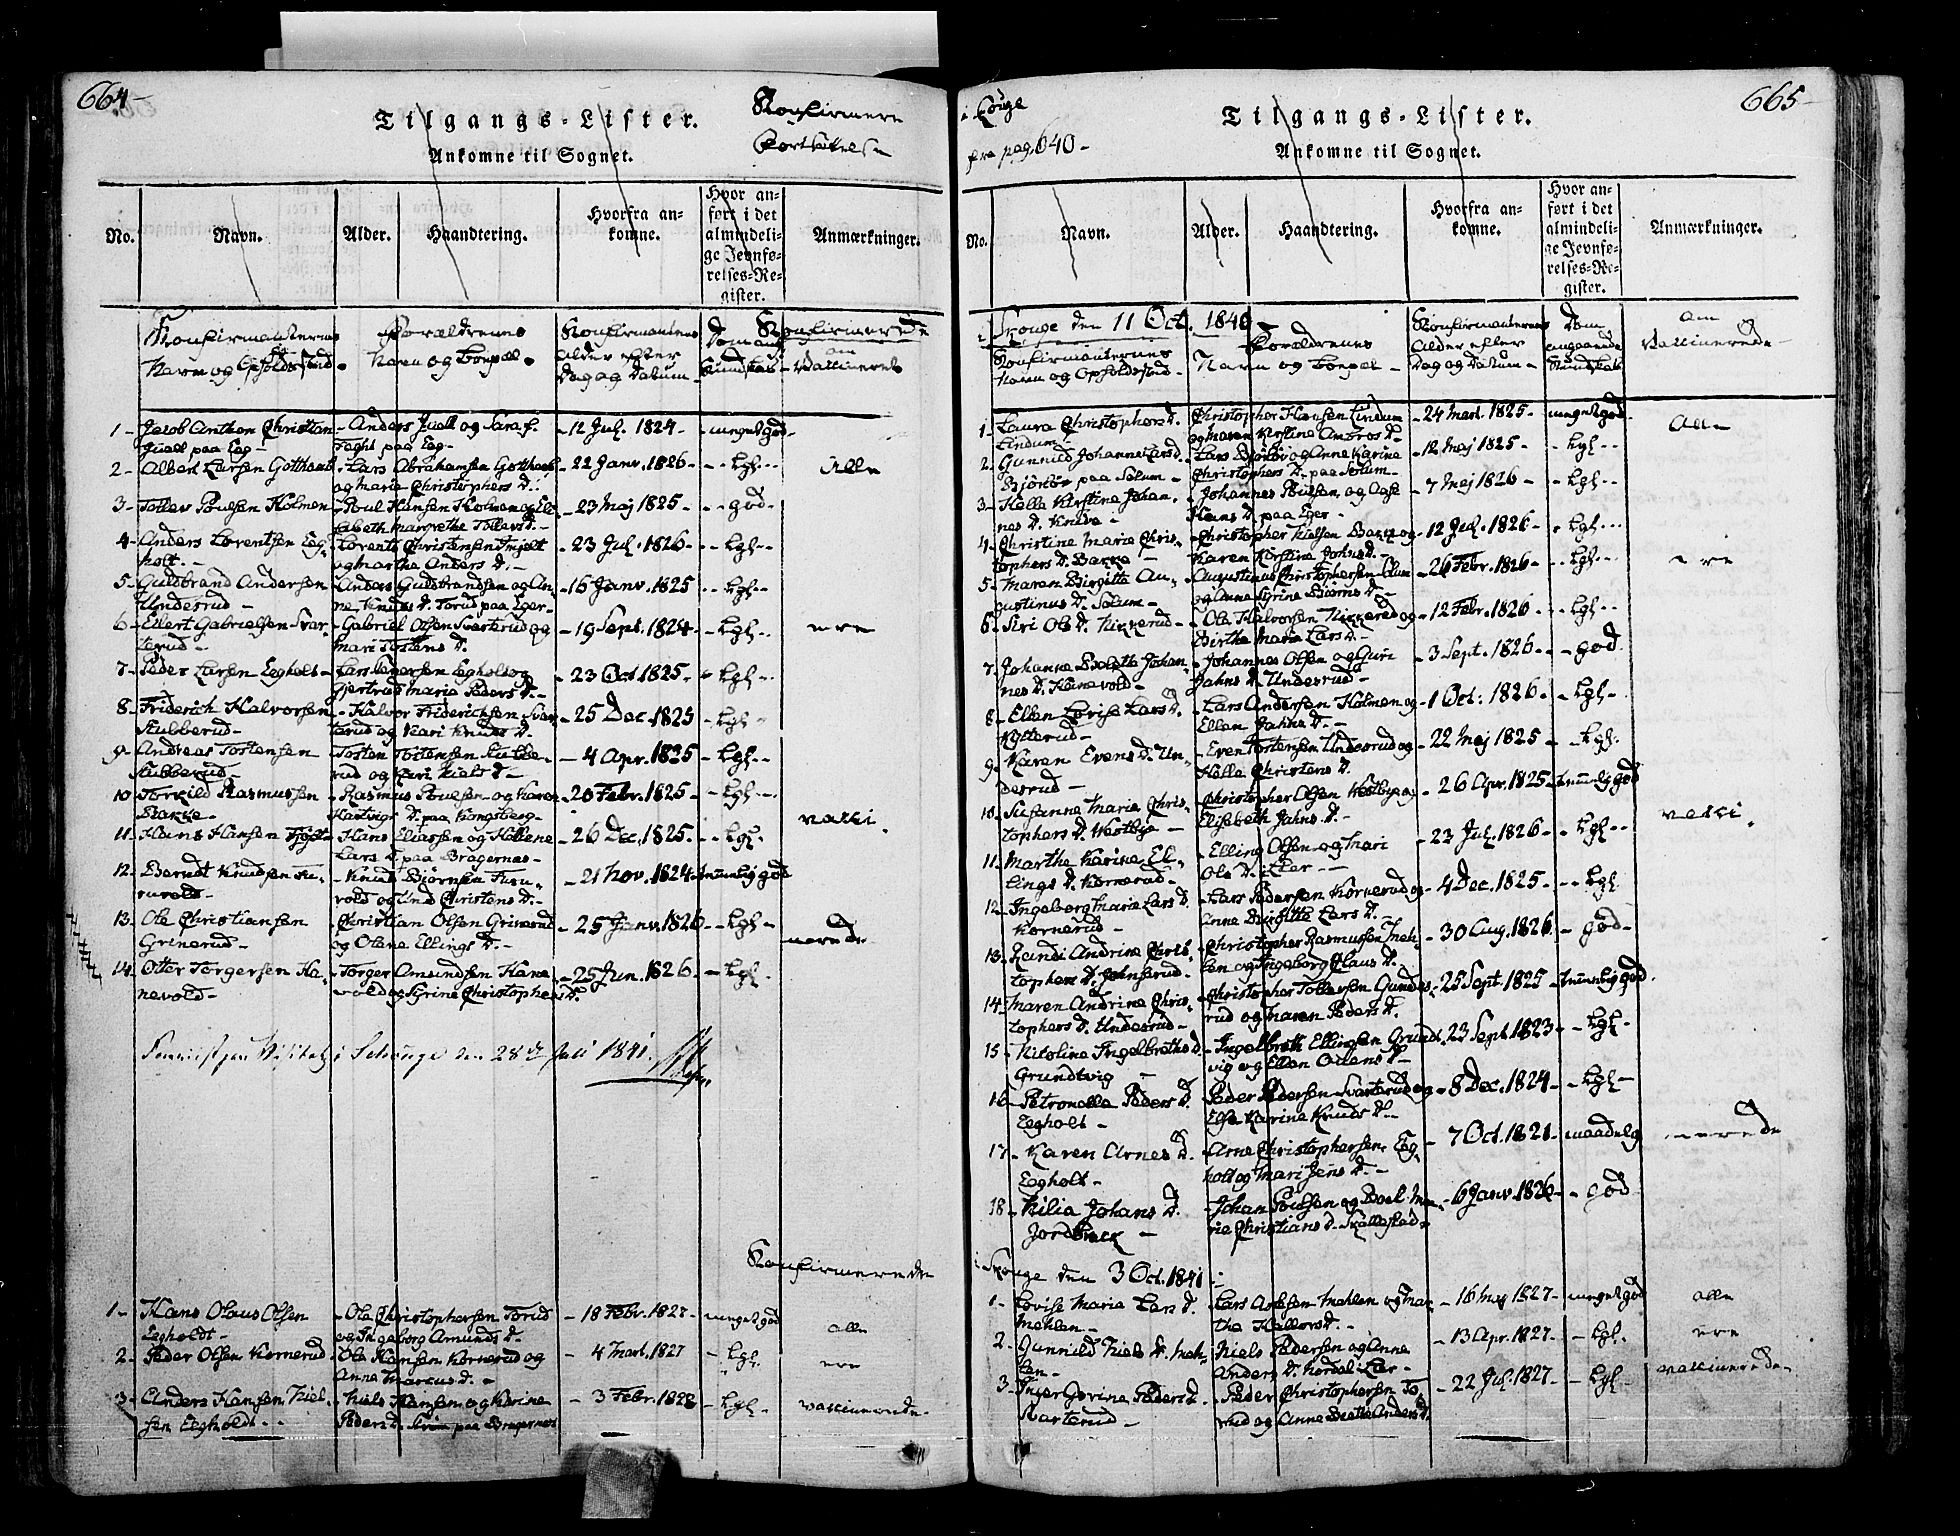 664-
Tilgangs-Lister.
Konfirmere
Ankomne til Sognet.
No.
Navn.
Alder.
Haandtering.
Hvorfra an-
komne.
Hvor an-
ført i det
almindeli-
ge Jevnfø-
relses-Re-
gister.
Anmærkninger.
Konfirmanternes
Navn og Opholdssted.
Forældrenes
Navn og Boepæl.
Konfirmantens
Alder efter
Dag og Datum
Dom ang.
Kundskab
Konfirmerede
om
Vaccineret
1- Jacob Anthon Christian
Juell paa Eeg-
-Anders Juell og Sara f.
paa Eeg-
-12 Jul. 1824-
-meget god-
2- Albert Larsen Gotthaab
-Lars Abrahamsen Gotthaab
og Marie Christophers D.
-22 Janv. 1826-
-Lgl-
Alle
3- Tollev Poulsen Holmen
-Poul Hansen Holmen og Eli-
sabeth Margrethe Tollevs D.-
-23 Maj 1825-
-god-
4- Anders Lorentsen Eeg-
holt.-
-Lorents Christensen
og Marthe Anders D.-
-23 Jul. 1826-
-Lgl-
5- Guldbrand Andersen
Undesrud-
-Anders Guldbrandsen og An-
ne Knuds D. Torud paa Eger-
-16 Janv. 1825
-Lgl-
6- Eilert Gabrielsen Svar-
terud-
-Gabriel Olsen Svarterud og
Mari Tostens D.
-19 Sept. 1824-
-Lgl-
ere
7- Peder Larsen Eegholt-
-Lars Pedersen Eegholt og
Gjertrud Maria Peders D.-
-23 Oct. 1825-
-Lgl-
8- Friderich Halvorsen
Stubberud-
-Halvor Friderichsen Svar-
terud og Kari Knuds D.
-25 Dec. 1825
-Lgl-
9- Andreas Tostensen
Stubberud-
-Tosten Tostensen Stubbe-
rud og Kari Niels D-
-4 Apr. 1825
-Lgl-
10 Torkild Rasmussen
Bakke-
-Rasmus Poulsen og Karen
Hartvigs D. paa Kongsberg-
-20 Febr. 1825-
-Lgl-
vacci
11- Hans Hansen
-Hans Eliassen og Hellene
Lars D. paa Bragernæs-
-26 Dec. 1825.
-Lgl-
12- Berndt Knudsen Fu-
ruvold-
-Knud Bjørnsen Furu-
vold og Christens D.-
-21 Nov. 1824-
-temmelig god
13- Ole Christiansen
Grinerud-
-Christian Olsen Grinerud
og Olene Ellings D.-
-25 Janv. 1826
-Lgl-
nerede
14- Otter Torgersen Ha-
nevold-
-Torger Amundsen Hane
vold og Syrine Christophers D.
-25 Jun. 1826-
-Lgl-
den 28de Juli 1841.
Konfirmerede
1- Hans Olaus Olsen
Eegholdt-
-Ole Christophersen Torud
og Ingeborg Amunds D.
-18 Febr. 1827-
meget god
alle
2- Peder Olsen Kornerud
-Ole Hansen Kornerud og
Anna Marcus D.-
-4 Mart. 1827
-Lgl-
ere
3- Anders Hansen Niel-
sen Eegholdt.-
-Niels Hansen og Karine
Peders D. paa Bragernæs
-3 Febr. 1828
-Lgl-
vaccinerede-
i Skouge
fra pag. 640-
665-
Tilgangs-Lister.
Ankomne til Sognet.
No.
Navn.
Alder.
Haandtering.
Hvorfra an-
komne.
Hvor an-
ført i det
almindeli-
ge Jevnfø-
relses-Re-
gister.
Anmærkninger.
i Skouge den 11 Oct. 1840
Konfirmanternes
Navn og Opholdssted-
Forældrenes
Navn og Boepæl-
Konfirmanternes
Alder efter
Dag og Datum-
Dom
angaaende
Kundskab
om
Vaccinerede-
1- Laura Christophers D.
Lindum-
Christopher Hansen Lindum
og Maren Kirstine Ambros D.-
-24 Mart. 1825-
-meget god-
Alle
2- Gunnild Johanne Lars D.
paa Solum-
Lars og Anne Karine
Christophers D. paa Solum-
-12 Maj 1825-
-Lgl-
3- Helle Kirstine Johan-
nes D. Knive-
-Johannes Poulsen og Aase
Hans D. paa Eger-
-7 Maj 1826-
-Lgl-
4- Christine Marie Chris-
tophers D. Bakke-
-Christopher Nielsen Bakke og
Karen Kirstine Johns D.-
-12 Jul. 1826-
-Lgl-
5- Maren Birgitte Au-
gustinus D. Solum-
-Augustinus Christophersen Solum
og Anne Syrine Biørns D.-
-26 Febr. 1826-
-Lgl-
ere
6- Siri Ols D. Kikkerud-
-Ole Halvorsen Kikkerud og
Birthe Maria Lars D-
-12 Febr. 1826
-Lgl-
7- Johanne Johan-
nes D. Hanevold-
-Johannes Olsen og Guri
Jahns D. Undesrud-
-3 Sept. 1826-
-god
8- Ellen Lovise Lars D.
Kytterud-
Lars Andersen Holmen og
Ellen Jahns D.-
-1 Oct. 1826-
-Lgl-
9- Karen Evens D. Un-
desrud-
-Even Tostensen Undesrud og
Helle Christens D.
-22 Maj 1825-
-Lgl-
10- Susanne Maria Chris-
tophers D. Westbye-
-Christopher Olsen Westbye og
Elisabeth Jahns D.-
-26 Apr. 1825-
temmelig god
vacci
11- Marthe Karine El-
lings D. Kornerud-
-Elling Olsen og Mari
Ols D. i Lier-
-23 Jul. 1826-
-Lgl-
12- Ingeborg Maria Lars D.
Kornerud-
-Lars Pedersen Kornerud og
Anne Birgitte Lars D.-
-4 Dec. 1825-
-Lgl
13- Randi Andrine Chris-
tophers D. Johnsrud-
-Christopher Rasmussen Meh-
len og Ingeborg Claus D.-
-30 Aug. 1826
-god-
14- Maren Andrine Chris-
tophers D. Undesrud-
-Christopher Tollefsen Gundes-
rud og Maren Peders D.
-25 Sept. 1825
-temmelig god
15- Nicoline Ingelbreths D.
Grundtvig-
-Ingelbreth Ellingsen Grundt-
vig og Ellen Odens D-
-23 Sept. 1823
-Lgl-
16- Petronelle Peders D.
Eegholt-
Peder Pedersen Svarterud og
Else Karine Knuds D.-
-8 Dec. 1824
-Lgl-
17- Karen Arnes D.
Eegholt-
-Arne Christophersen Eeg-
holt og Mari Jens D.-
-7 Oct. 1821-
maadelig
nerede
18- Nilia Johans D.
Jordbræk-
-Johan Poulsen og Boel Ma-
rie Christians D-
-6 Janv. 1826
-god
i Skouge den 3 Oct. 1841
1- Lovise Maria Lars D.
Mehlen-
Lars Mehlen og Mar-
the Halvors D.-
-16 Maj 1827-
meget god
alle
2- Gunnild Niels D. Meh-
len-
Niels Pedersen og Anne
Anders D. i Lier-
-13 Apr. 1827-
-Lgl.
ere
3- Inger Gorine Peders D.
Svarterud-
-Peder Christophersen To-
rud og Anne Beathe Anders D.
-22 Jul. 1827-
-Lgl-
vaccinerede-